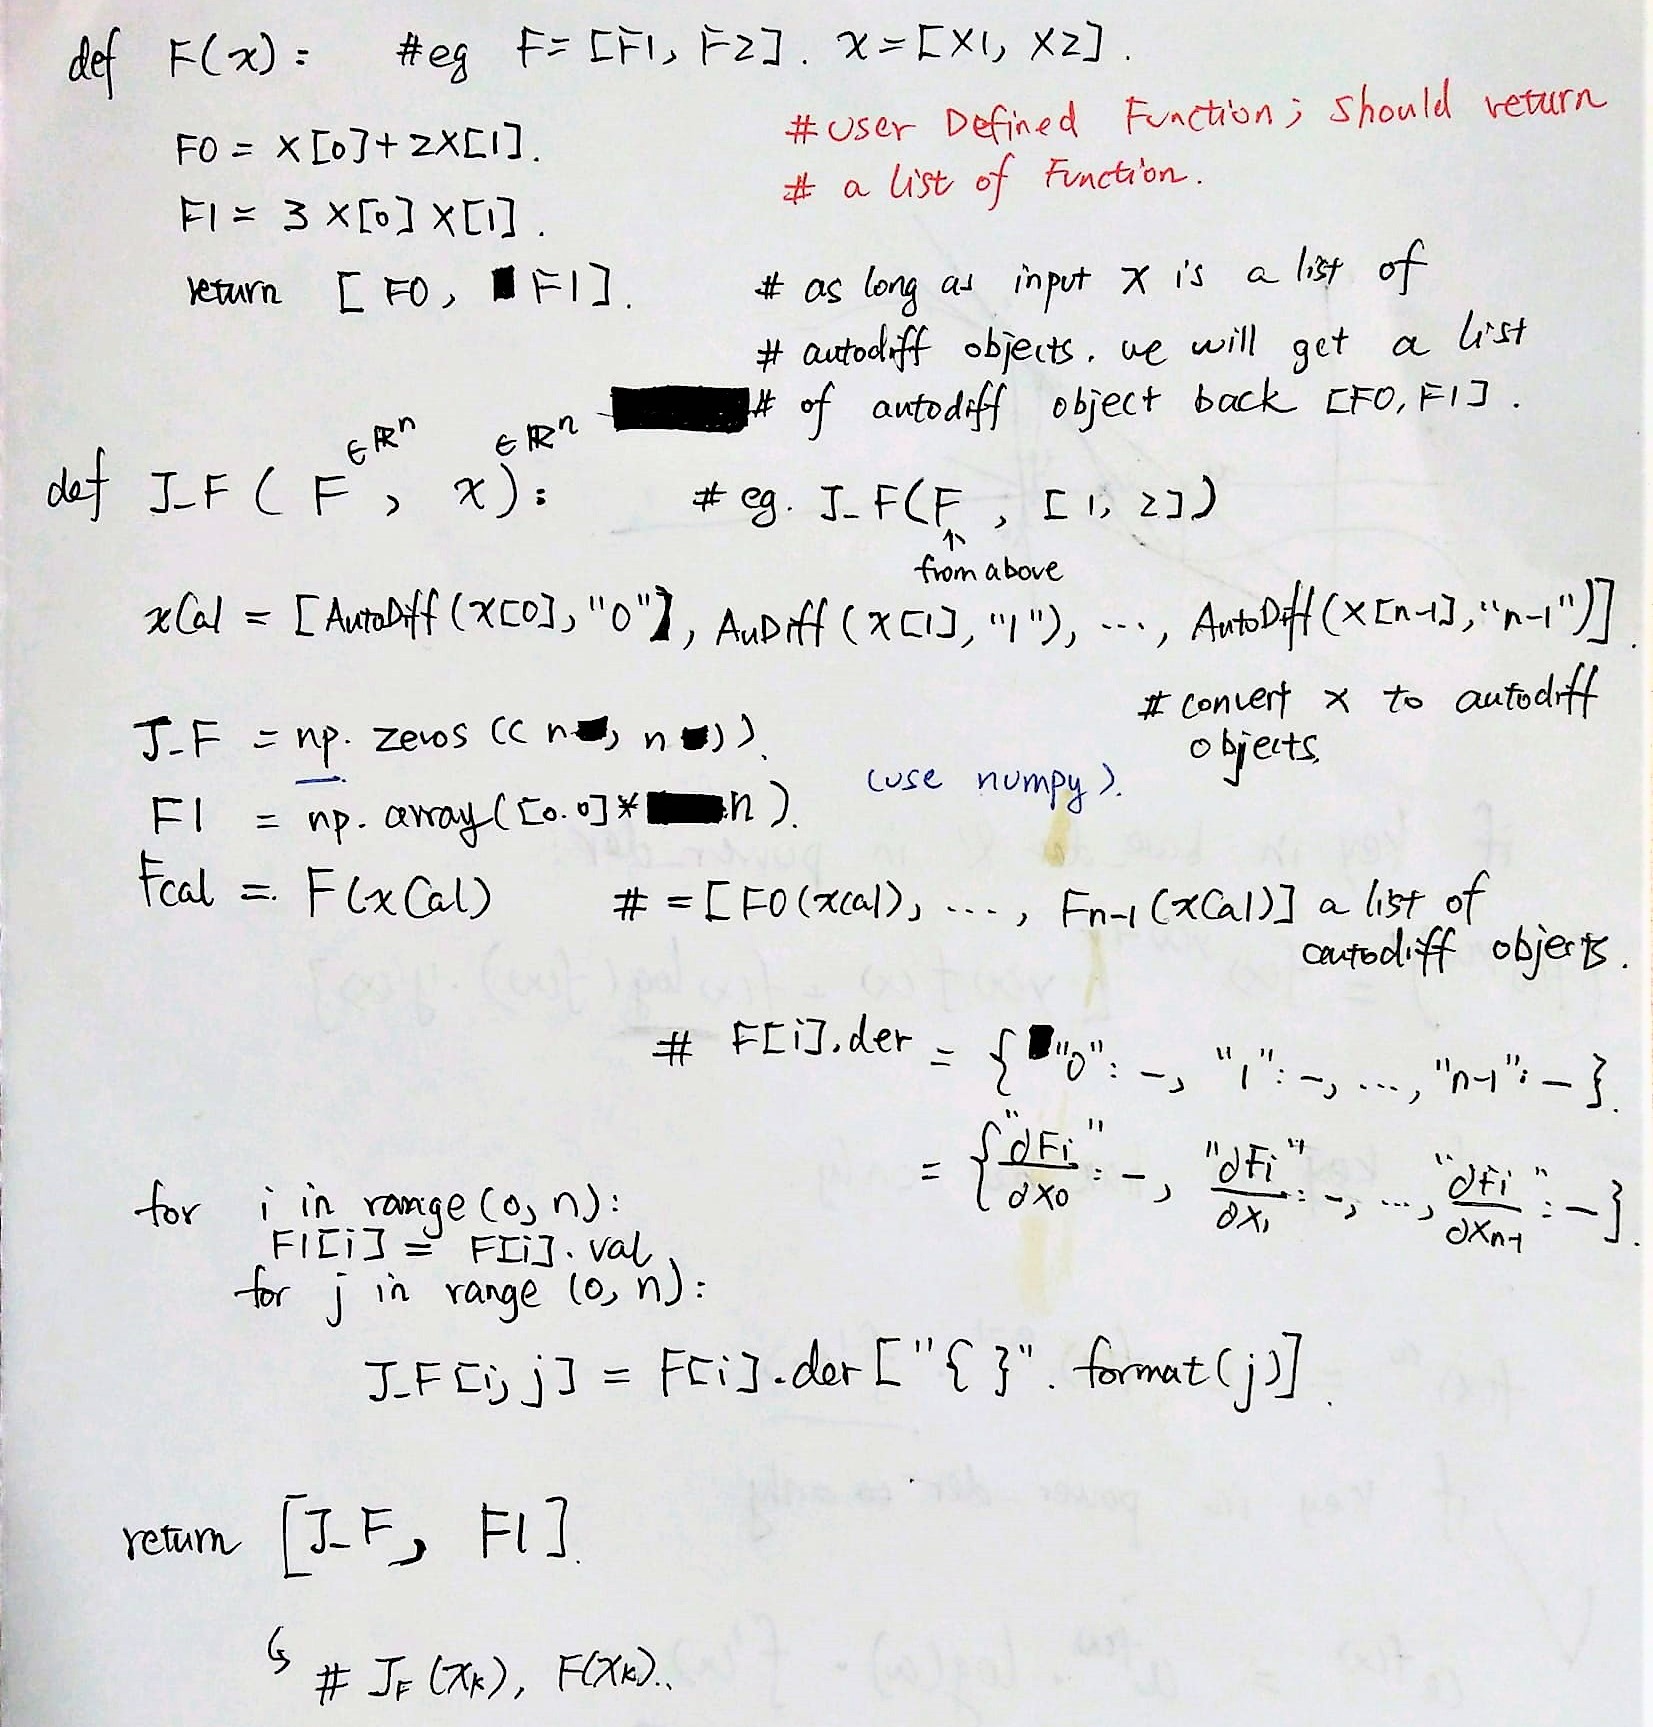 def F(x): #eg F=[F1, F2]. x=[X1, X2].
#User Defined Function; should return
F0 = X[0]+2X[1].
# a list of Function.
F1 = 3 X[0] X[1].
return [F0, F1].
# as long as input x is a list of
# autodiff objects. we will get a list
# of autodiff object back [F0, F1].
∈ℝⁿ ∈ℝⁿ
def J_F ( F , x ): # eg. J_F(F , [1, 2])
↑
from above
xCal = [AutoDiff (x[0], "0"], AuDiff (x[1], "1"), ..., AutoDiff(x[n-1], "n-1")].
# convert x to autodiff
objects.
J_F = np. zeros (( n , n )).
(use numpy).
F1 = np. array([0.0]* n).
Fcal = F(xCal) # = [F0(xcal), ..., Fn-1 (xCal)] a list of
autodiff objects.
# F[i].der = {"0": -, "1": -, ..., "n-1": - }.
= {"∂Fi/∂X0": -, "∂Fi/∂X1": -, ..., "∂Fi/∂Xn-1": - }.
for i in range(0, n):
F1[i] = F[i]. val
for j in range (0, n):
J_F [i, j] = F[i].der ["{ }". format(j)].
return [J_F, F1].
↳ # J_F (x_K), F(X_K)..